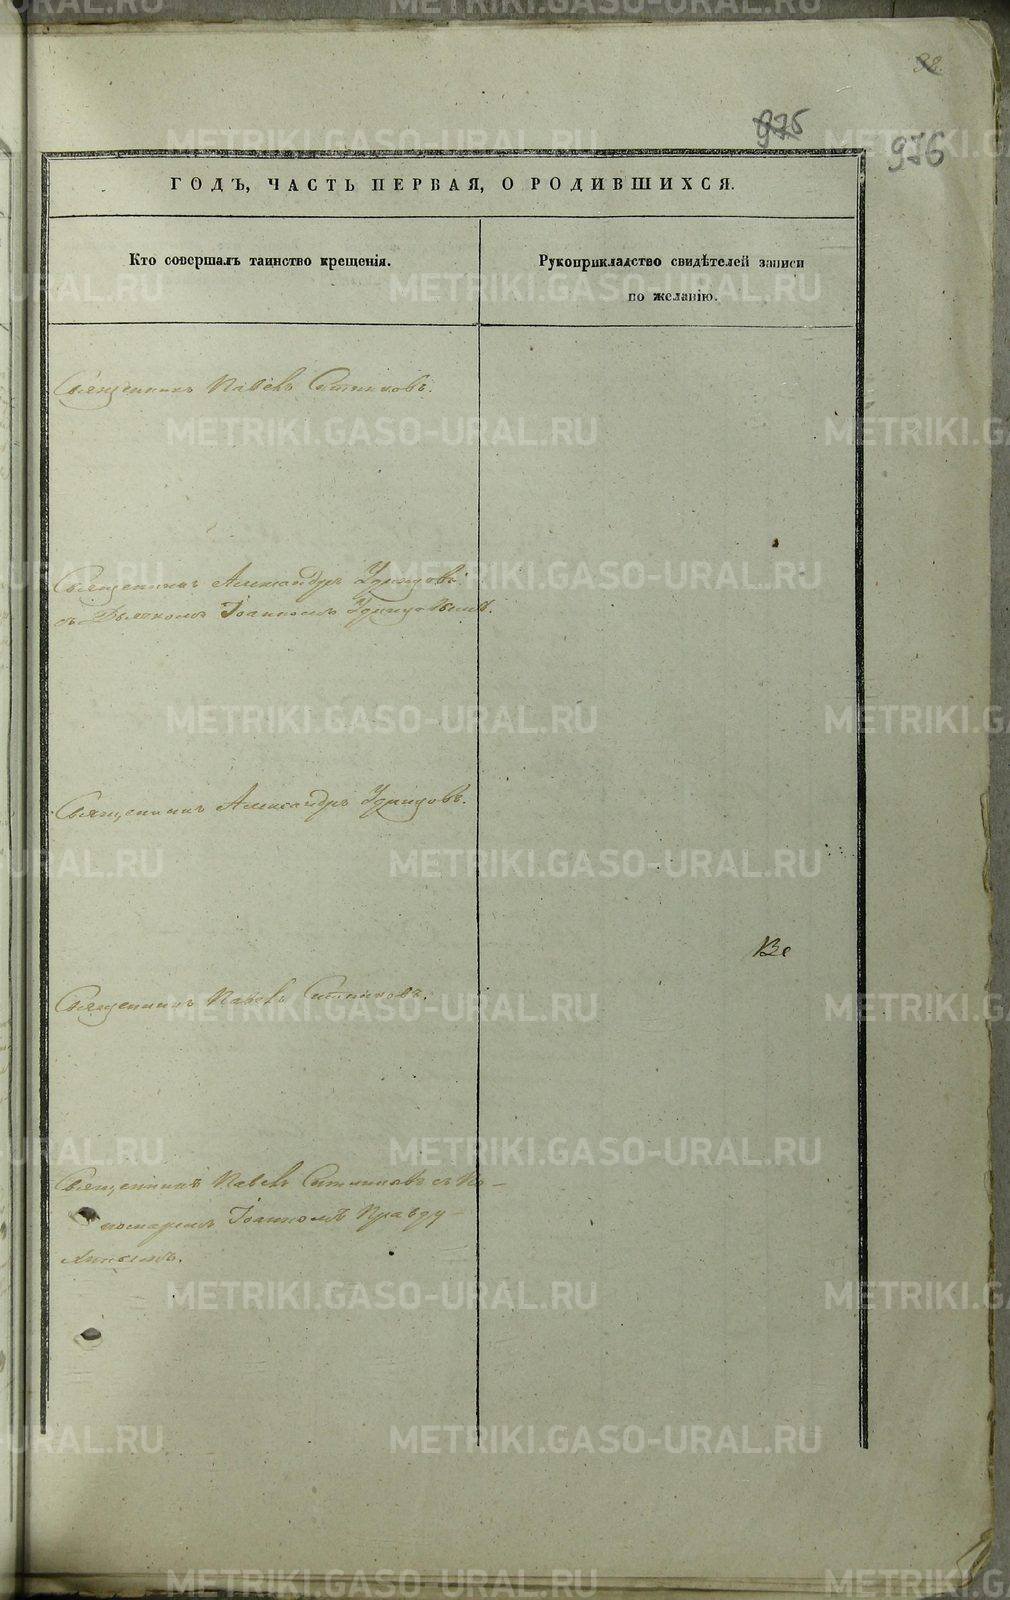 32.
975
976
ГОДЪ, ЧАСТЬ ПЕРВАЯ, О РОДИВШИХСЯ.
Кто совершалъ таинство крещенія.
Рукоприкладство свидѣтелей записи
по желанію.
Священникъ Павелъ Ситниковъ.
Священникъ Александръ Удинцовъ
съ Дьячкомъ Іоанномъ Удинцовымъ.
Священникъ Александръ Удинцовъ.
Священникъ Павелъ Ситниковъ.
Священникъ Павелъ Ситниковъ съ По-
номаремъ Іоанномъ Правду-
хинымъ.
METRIKI.GASO-URAL.RU